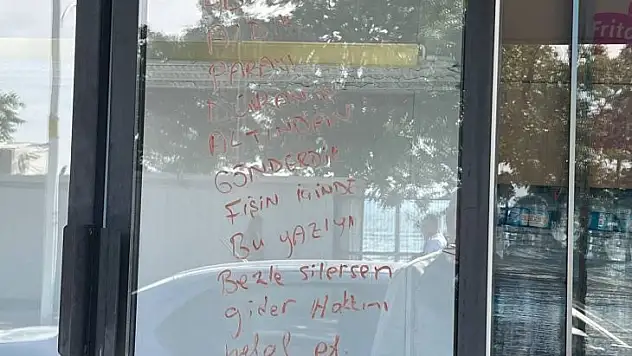 ALDIK
PARANI
ALTINDAN
GÖNDERDİK
FİŞİN İÇİNDE
BU YAZIYI
Bezle silersen
gider Hakkını
helal et.
Frito